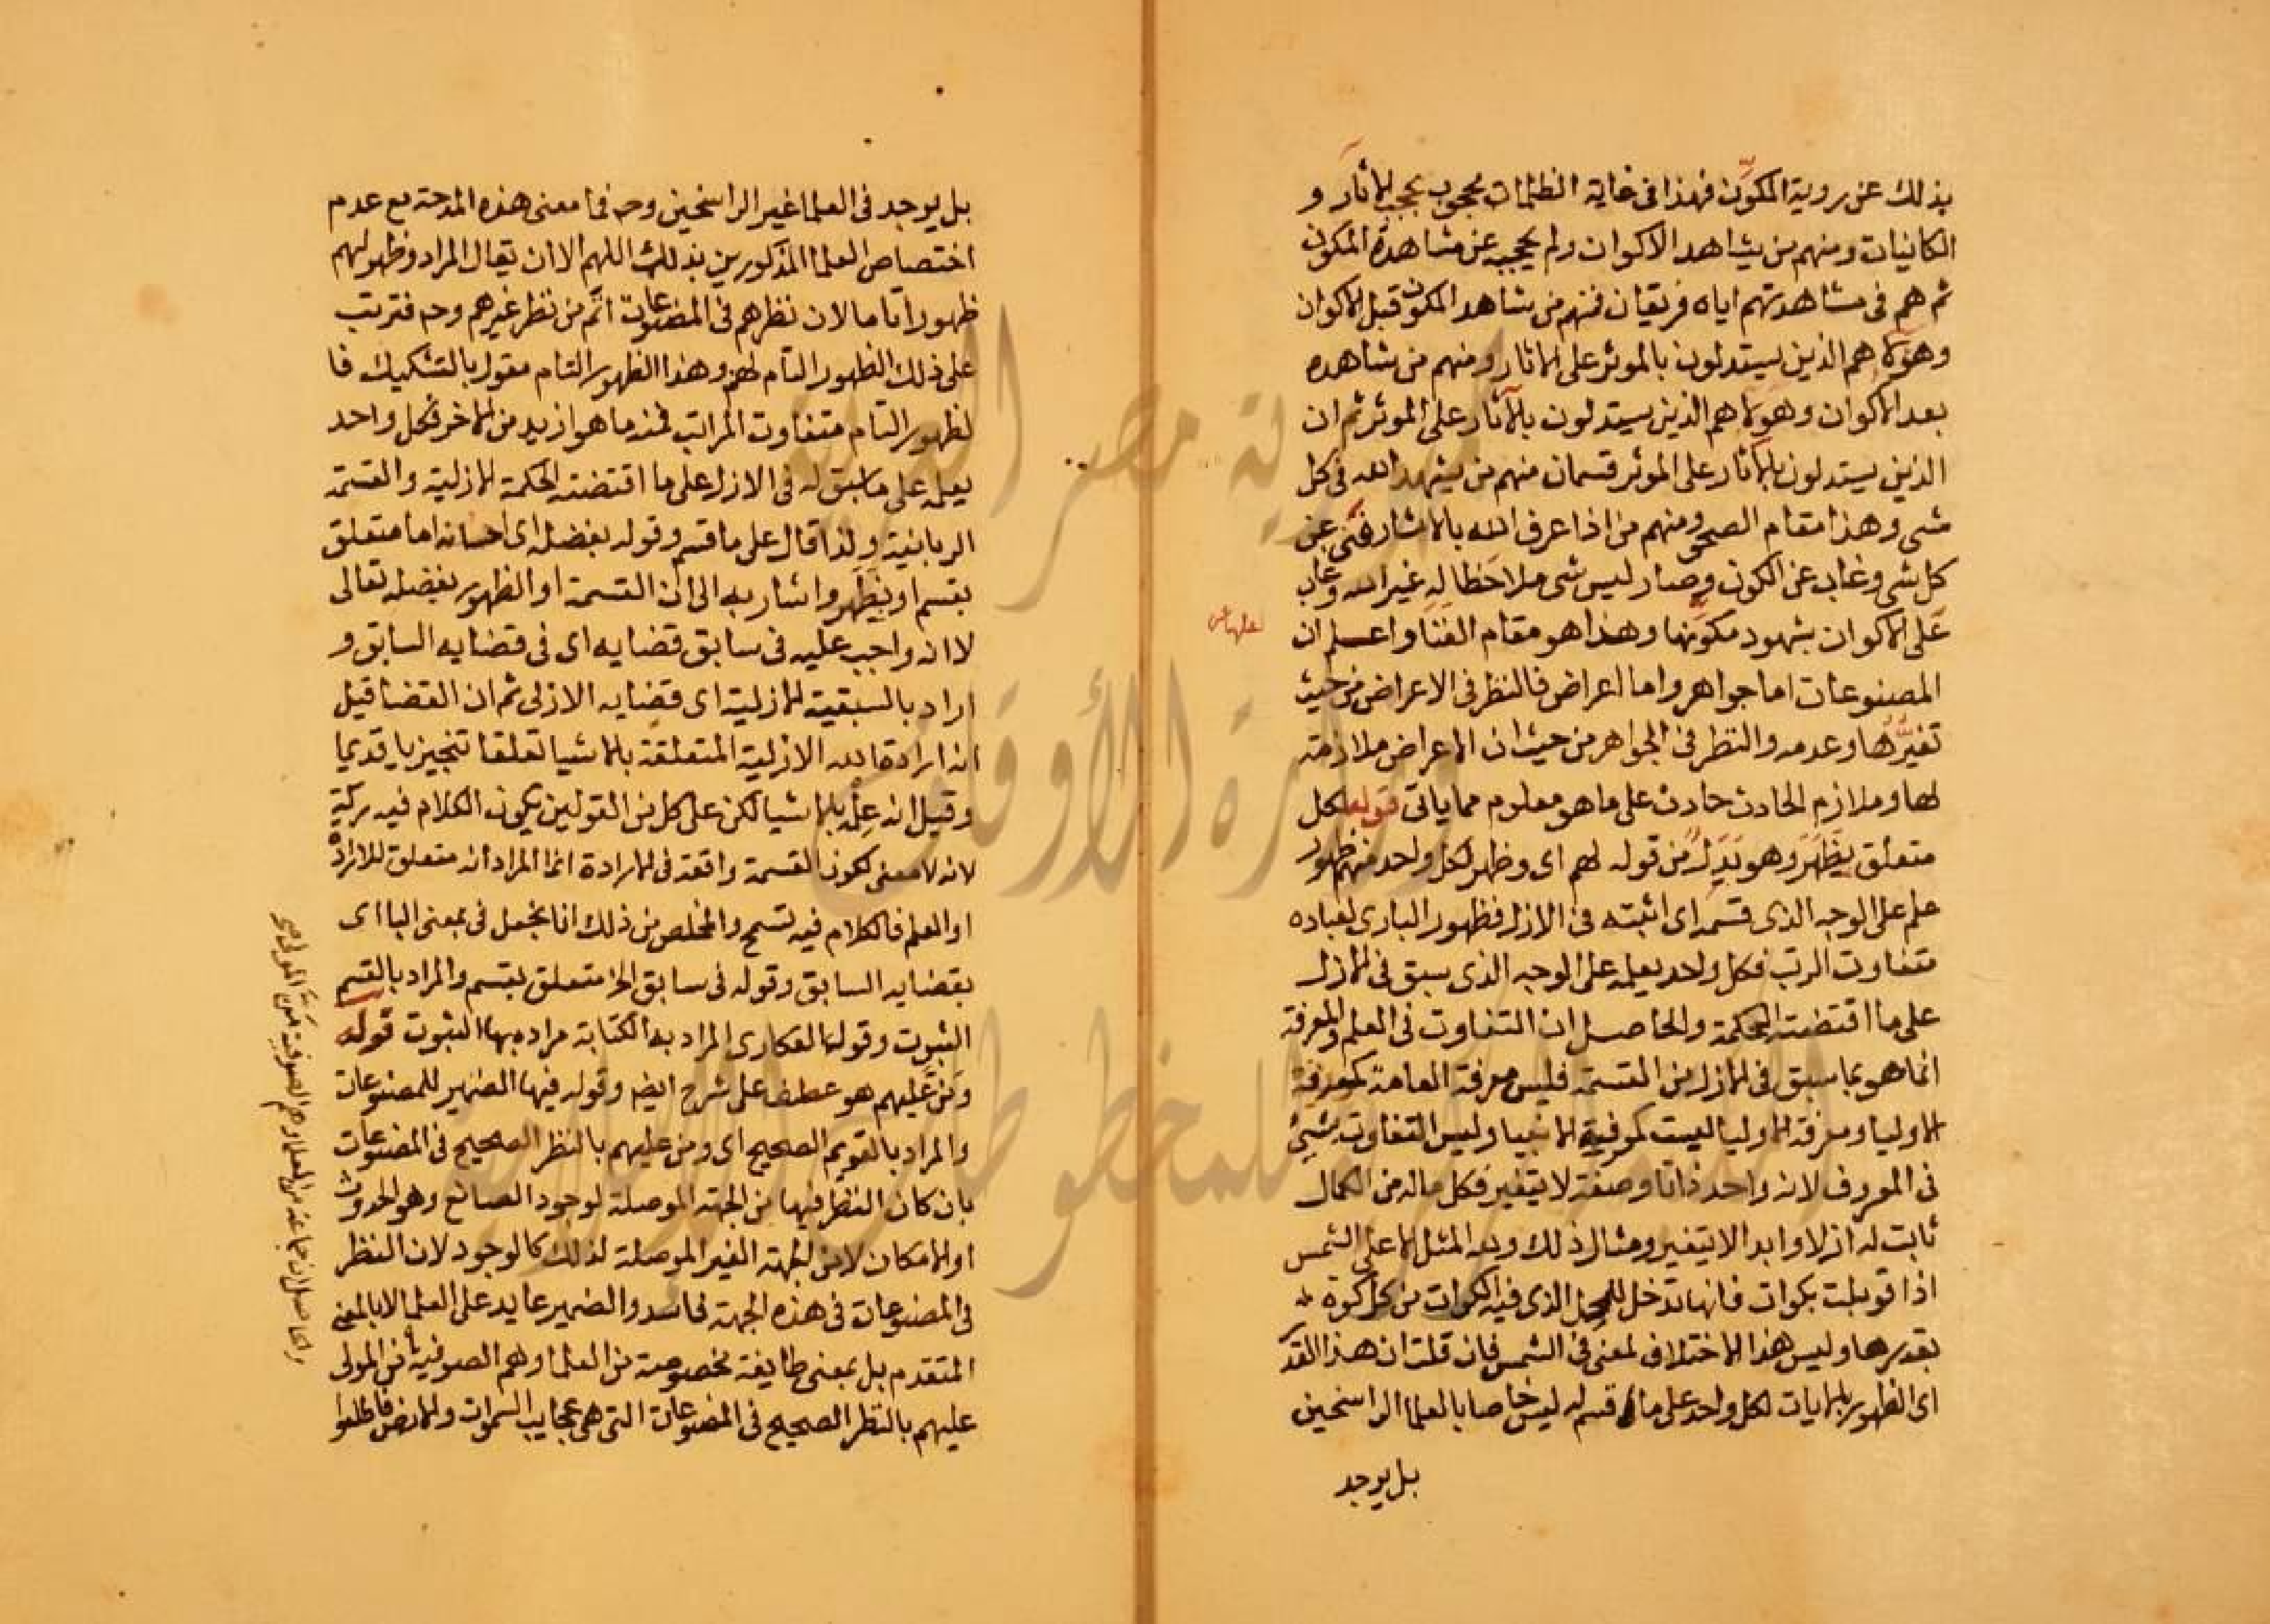 بذلك عن روية المكوّن فهذا فى غاية الظلمات محجوب بحجب الاثار و
الكاينات ومنهم من يشاهد الاكوان ولم يحجبه عن مشاهدة المكون
ثم هم فى مشاهدتهم اياه فريقان فمنهم من يشاهد المكون قبل الاكوان
وهؤلا هم الذين يستدلون بالموثر على الاثار ومنهم من شاهده
بعد الاكوان وهؤلا هم الذين يستدلون بالآثار على الموثر ثم ان
الذين يستدلون بالآثار على الموثر قسمان منهم من يشهد الله فى كل
شى وهذا مقام الصحو ومنهم من اذا عرف الله بالاثار فنى عن
كل شى وغاب عن الكون وصار ليس شى ملاحظا له غير الله وغاب
على الاكوان بشهود مكوّنها وهذا هو مقام الفنا واعلم ان
لعلها عن
المصنوعات اما جواهر واما اعراض فالنظر فى الاعراض من حيث
تغيّرها وعدمه والنظر فى الجواهر من حيث ان الاعراض ملازمة
لها وملازم الحادث حادث على ما هو معلوم مما ياتى قوله لكل
متعلق بظهر وهو بدل من قوله لهم اى وظهر لكل واحد منهم ظهور
علم على الوجه الذى قسم اى اثبته فى الازل فظهور البارى لعباده
متفاوت الرتب فكل واحد يعلمه على الوجه الذى سبق فى الازل
على ما اقتضته الحكمة والحاصل ان التفاوت فى العلم والمعرفة
انما هو بما سبق فى الازل من القسمة فليس معرفة العامة كمعرفة
الاوليا ومعرفة الاوليا ليست كمعرفة الانبيا وليس التفاوت بشئ
فى المعروف لانه واحد ذاتا وصفة لا يتغير فكل ماله من الكمال
ثابت له ازلا وابدا لا يتغير ومثال ذلك ولله المثل الاعلى الشمس
اذا قوبلت بكوات فانها تدخل للمحل الذى فيه الكوات من كل كوة
بقدرها وليس هذا الاختلاف لمعنى فى الشمس فان قلت ان هذا القدر
اى الظهور بالايات لكل واحد على ما قسم له ليس خاصا بالعلما الراسخين
بل يوجد
بل يوجد فى العلما غير الراسخين وح فما معنى هذه المدحة مع عدم
اختصاص العلما المذكورين بذلك اللهم الا ان يقال المراد وظهر لهم
ظهورا تاما لان نظرهم فى المصنوعات اتم من نظر غيرهم وح فترتب
على ذلك الظهور التام لهم وهذا الظهور التام مقول بالتشكيك فا
لظهور التام متفاوت المراتب فمنه ما هو ازيد من الاخر فكل واحد
يعلمه على ما سبق له فى الازل على ما اقتضته الحكمة الازلية والقسمة
الربانية ولذا قال على ما قسم وقوله بفضله اى احسانه اما متعلق
بقسم او بظهر واشار به الى ان القسمة او الظهور بفضله تعالى
لا انه واجب عليه فى سابق قضايه اى فى قضايه السابق و
اراد بالسبقية الازلية اى قضايه الازلى ثم ان القضا قيل
انه ارادة الله الازلية المتعلقة بالاشيا تعلقا تنجيزيا قديما
وقيل انه علمه بالاشيا لكن على كل من القولين يكون الكلام فيه ركة
لانه لا معنى لكون القسمة واقعة فى الارادة انما المراد انه متعلق للارادة
او العلم فالكلام فيه تسمح والمخلص من ذلك انا نجعل فى بمعنى البا اى
بقضايه السابق وقوله فى سابق الخ متعلق بقسم والمراد بالقسم
الثبوت وقول العكارى المراد به الكتابة مراده بها الثبوت قوله
ومنّ عليهم هو عطف على شرح ايضا وقوله فيها الضمير للمصنوعات
والمراد بالقويم الصحيح اى ومن عليهم بالنظر الصحيح فى المصنوعات
بان كان النظر فيها من الجهة الموصلة لوجود الصانع وهو الحدوث
او الامكان لا من الجهة الغير الموصلة لذلك كالوجود لان النظر
فى المصنوعات فى هذه الجهة فاسد والضمير عايد على العلما لا بالمعنى
المتقدم بل بمعنى طايفة مخصوصة من العلما وهم الصوفية من المولى
عليهم بالنظر الصحيح فى المصنوعات التى هى عجايب السموات والارض فاطلعوا
والحاصل ان جماعة من العلما وهم الصوفية منّ المولى